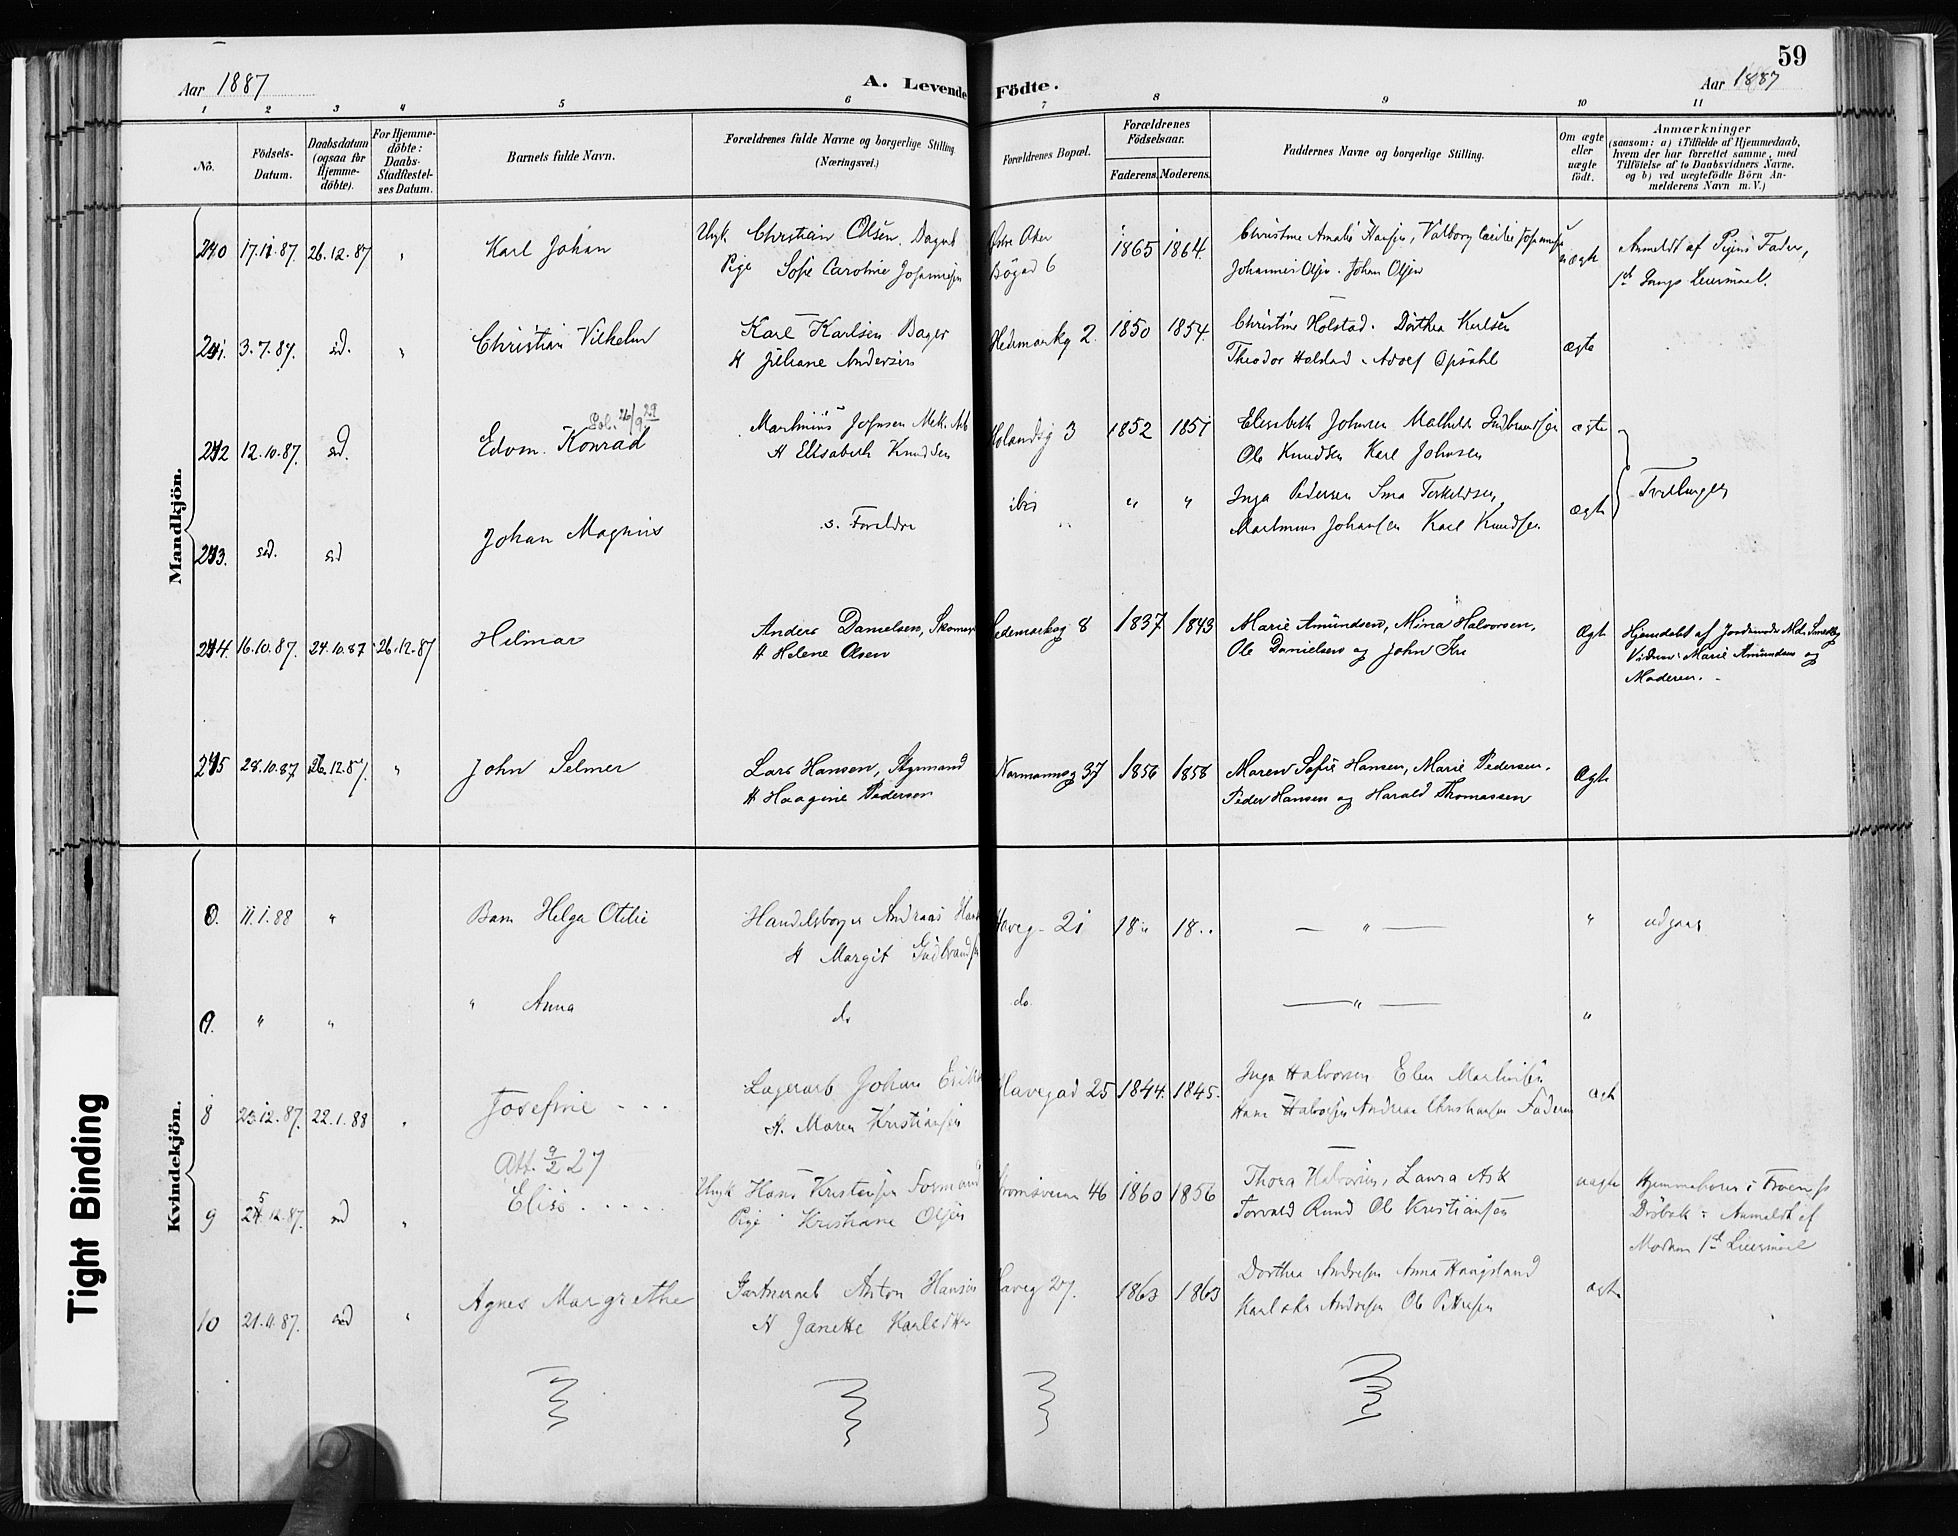 59
Aar 1887
A. Levende Födte.
Aar 1887
1 2 3 4 5 6 7 8 9 10 11
No.
Födsels-Datum.
Daabsdatum (ogsaa for Hjemme-döbte).
For Hjemme-döbte: Daabs-Stadfæstel-ses Datum.
Barnets fulde Navn.
Forældrenes fulde Navne og borgerlige Stilling (Næringsvei.)
Forældrenes Bopæl.
Forældrenes Födselsaar.
Faderens. Moderens.
Faddernes Navne og borgerlige Stilling.
Om ægte eller uægte födt.
Anmærkninger
(saasom: a) i Tilfælde af Hjemmedaab,
hvem der har forrettet samme, med
Tilföielse af to Daabsvidners Navne,
og b) ved uægtefödte Börn An-
melderens Navn m. V.)
Mandkjön.
240 17.11.87. 26.12.87 " Karl Johan
Ungk Christian Olsen. Dagarb
Pige Sofie Caroline Johannesen
Østre Aker
Bøgad 6
1865 1864.
Johannes Olsen. Johan Olsen
uægte
Anmeldt af Pigens Fader,
1ste Gangs Leiermaal.
241. 3.7.87. sd. " Christian Vilhelm
Karl Karlsen Bager
H Juliane Andersen
Hedemarkg 2. 1850 1854.
Christine Holstad. Dorthea Karlsen
Theodor Holstad. Adolf Opsahl
ægte
242 12.10.87. sd. Edvin Konrad
Pol. 26/9 29
Martinius Johnsen Mek. Arb
H Elisabeth Knudsen
Holandsg 3 1852 1851
Elisabeth Johnsen Mathilde Gudbrandsen
Ole Knudsen Karl Johnsen
ægte
Tvillinger
243. sd. sd Johan Magnus
s. Foreldre
ibid " "
Inga Pedersen
Martinius Johansen Karl Knudsen
ægte
244. 16.10.87. 24.10.87 26.12.87 Hilmar
Anders Danielsen, Skomag
H Helene Olsen
Hedemarkg 8 1837 1843
Marie Amundsen, Mina Halvorsen,
Ole Danielsen og John
Ægte
Hjemdøbt af Jordmoder
Vidner: Marie Amundsen og
Moderen.
245 28.10.87 26.12.87. " John Selmer
Lars Hansen, Styrmand
H Haagine Pedersen
Normannsg 37 1856 1858
Maren Sofie Hansen, Marie Pedersen,
Peder Hansen og Harald Thomassen
Ægte
Kvindekjön.
0. 11.1.88 " Barn Helga Otilie
Handelsborger Andreas
H Margit Gudbrandsen
Haveg 21 18" 18..
— " —
"
udgaar
0. " " " Anna
do
do.
— " —
"
8 23.12.87. 22.1.88 " Josefine
Lagerarb Johan
H. Maren Kristiansen
Havegad 25 1844. 1845.
Inga Halvorsen
Hans Halvorsen Andreas Christiansen Faderen
ægte
Att. 9/2 27
9 25.12.87. sd " Elise
Ungk Hans Kristensen Formand
Pige Kristiane Olsen
Strømsveien 46 1860 1856
Thora Halvorsen, Laura Ask
Torvald Rund Ole Kristiansen
uægte
Drøbak: Anmeldt af
Moderen 1ste Leiermaal
10 21.11.87. sd " Agnes Margrethe
Gartnerarb Anton Hansen
H Janette
Haveg 27. 1863 1863
Dorthea Andresen Anna Haugsland
Andresen Ole Pettersen
ægte
Tight Binding